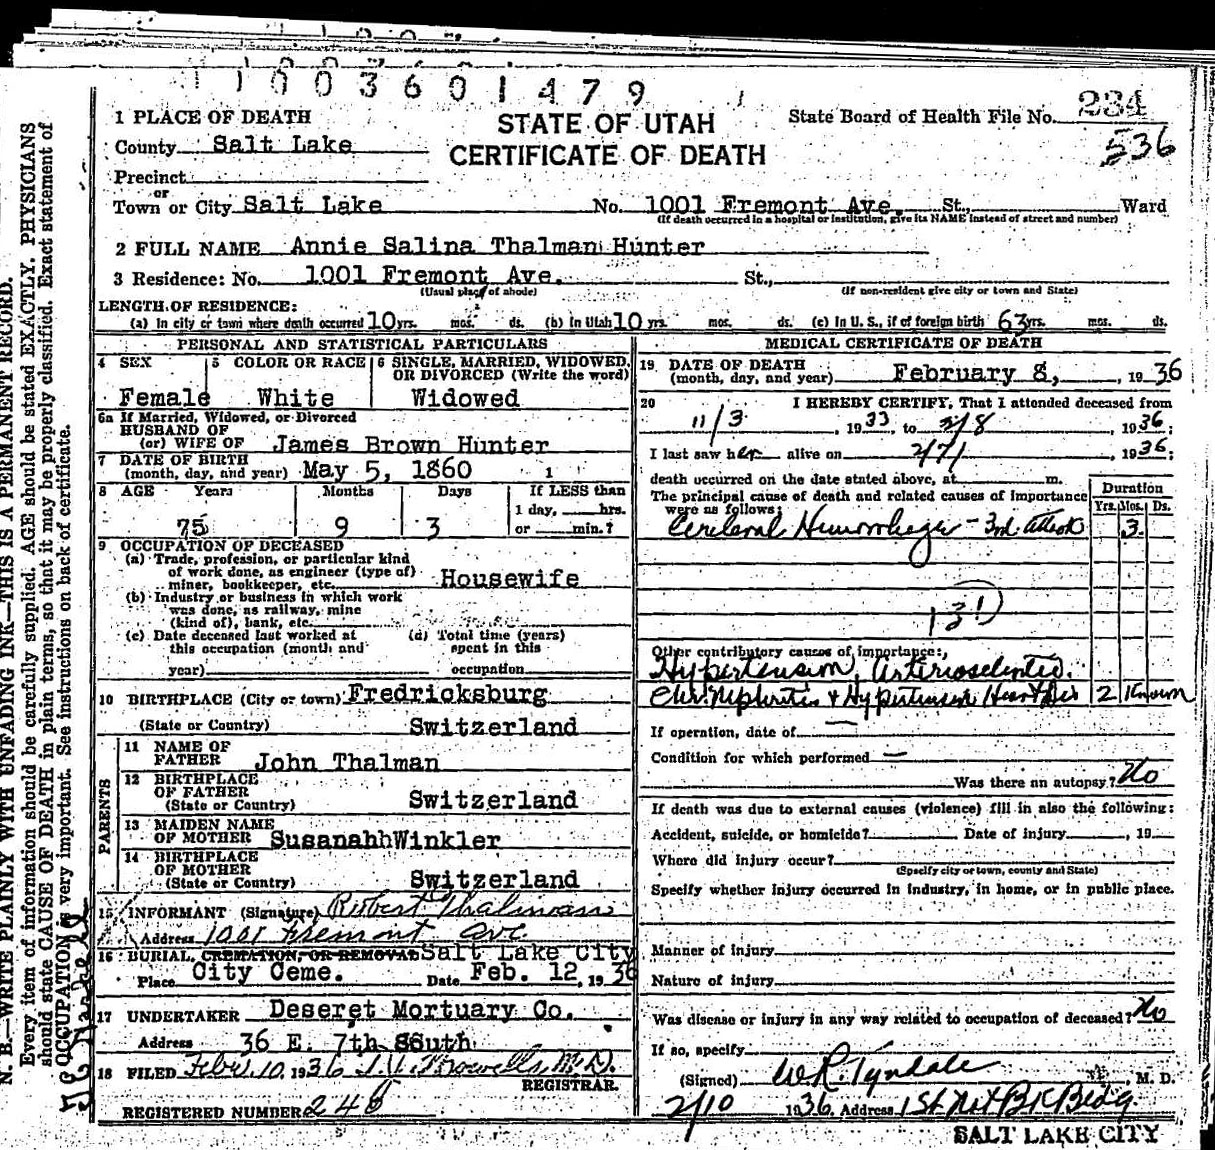 1003601479
1 PLACE OF DEATH
STATE OF UTAH
CERTIFICATE OF DEATH
State Board of Health File No. 234
536
County Salt Lake
Precinct
or
Town or City Salt Lake No. 1001 Fremont Ave. St., Ward
(If death occurred in a hospital or institution, give its NAME instead of street and number)
2 FULL NAME Annie Salina Thalman Hunter
3 Residence: No. 1001 Fremont Ave. St.,
(Usual place of abode) (If non-resident give city or town and State)
LENGTH OF RESIDENCE:
(a) In city or town where death occurred 10 yrs. mos. ds. (b) In Utah 10 yrs. mos. ds. (c) In U. S., if of foreign birth 63 yrs. mos. ds.
PERSONAL AND STATISTICAL PARTICULARS
4 SEX 5 COLOR OR RACE 6 SINGLE, MARRIED, WIDOWED, OR DIVORCED (Write the word)
Female White Widowed
6a If Married, Widowed, or Divorced
HUSBAND OF
(or) WIFE OF James Brown Hunter
7 DATE OF BIRTH
(month, day, and year) May 5, 1860
8 AGE Years Months Days If LESS than
1 day, hrs.
75 9 3 or min.?
9 OCCUPATION OF DECEASED
(a) Trade, profession, or particular kind
of work done, as engineer (type of)
miner, bookkeeper, etc. Housewife
(b) Industry or business in which work
was done, as railway, mine
(kind of), bank, etc.
(c) Date deceased last worked at (d) Total time (years)
this occupation (month and spent in this
year) occupation
10 BIRTHPLACE (City or town) Fredricksburg
(State or Country) Switzerland
PARENTS
11 NAME OF
FATHER John Thalman
12 BIRTHPLACE
OF FATHER
(State or Country) Switzerland
13 MAIDEN NAME
OF MOTHER Susanahh Winkler
14 BIRTHPLACE
OF MOTHER
(State or Country) Switzerland
15 INFORMANT (Signature) Robert Thalmann
Address 1001 Fremont Ave
16 BURIAL, CREMATION, OR REMOVAL Salt Lake City
Place City Ceme. Date Feb. 12, 1936
17 UNDERTAKER Deseret Mortuary Co.
Address 36 E. 7th South
18 FILED Feb 10, 1936 M.D.
REGISTRAR.
REGISTERED NUMBER 248
MEDICAL CERTIFICATE OF DEATH
19 DATE OF DEATH
(month, day, and year) February 8, , 1936
20 I HEREBY CERTIFY, That I attended deceased from
11/3 , 1933, to 2/8 , 1936;
I last saw her alive on 2/7 , 1936;
death occurred on the date stated above, at m.
The principal cause of death and related causes of importance
were as follows: Duration
Yrs. Mos. Ds.
Cerebral Hemorrhage - 3rd attack 3
131
Other contributory causes of importance:
Hypertension, Arteriosclerotic.
Chr. Nephritis + Hypertension Heart Dis 2 Known
If operation, date of —
Condition for which performed —
Was there an autopsy? No
If death was due to external causes (violence) fill in also the following:
Accident, suicide, or homicide? Date of injury , 19
Where did injury occur?
(Specify city or town, county and State)
Specify whether injury occurred in industry, in home, or in public place.
Manner of injury
Nature of injury
Was disease or injury in any way related to occupation of deceased? No
If so, specify
(Signed) W R. Tyndale , M. D.
2/10 1936, Address 1st Nat Bk Bldg.
SALT LAKE CITY
N. B.—WRITE PLAINLY WITH UNFADING INK—THIS IS A PERMANENT RECORD.
Every item of information should be carefully supplied. AGE should be stated EXACTLY. PHYSICIANS
should state CAUSE OF DEATH in plain terms, so that it may be properly classified. Exact statement of
OCCUPATION is very important. See instructions on back of certificate.